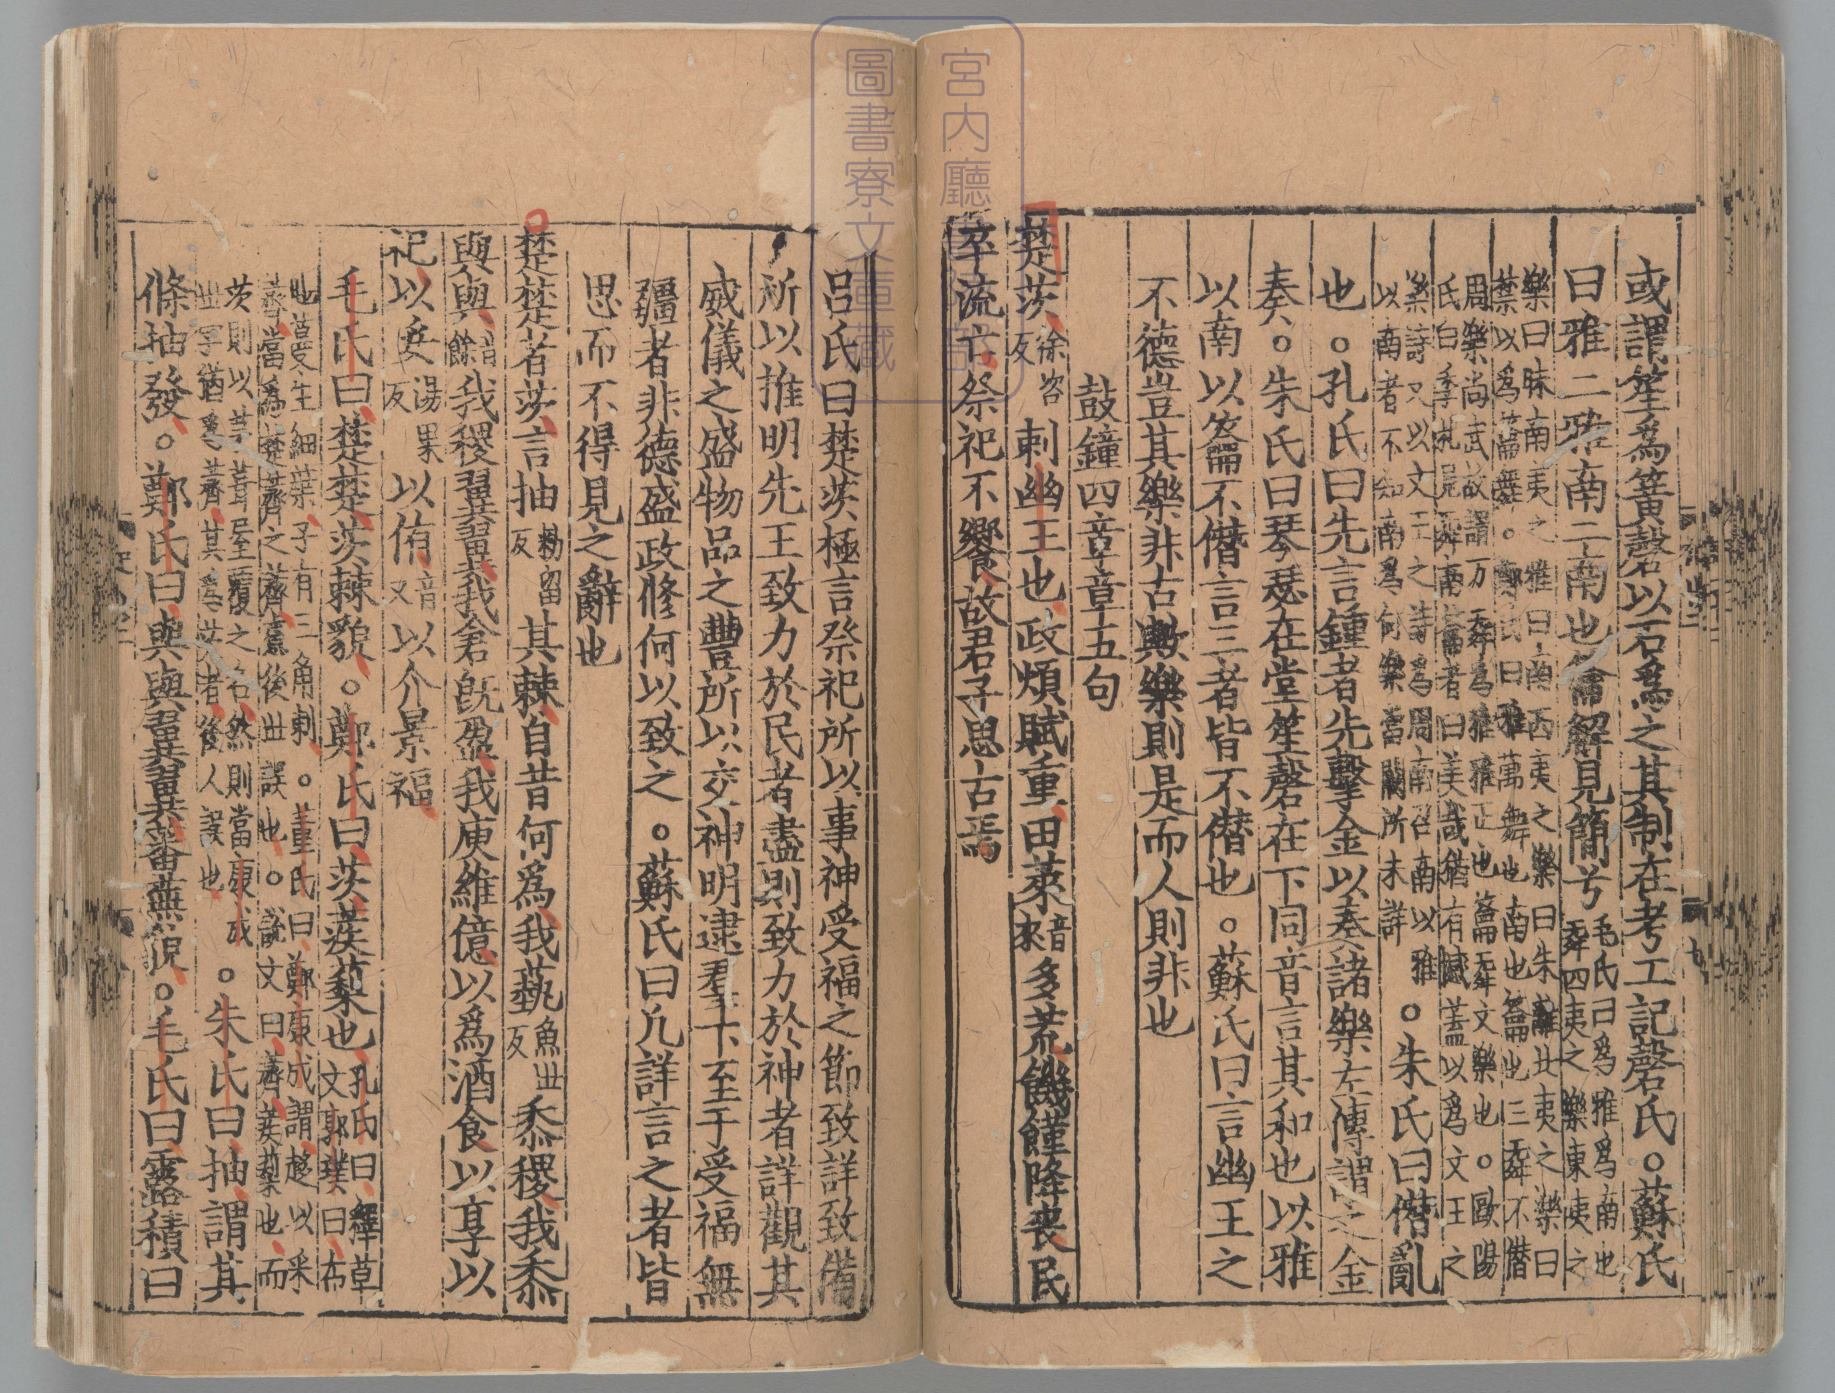 或謂笙爲簧磬以石爲之其制在考工記磬氏。蘇氏
曰雅二雅南二南也籥解見簡兮毛氏曰爲雅爲南也
舞四夷之樂東夷之
樂曰昧南夷之樂曰南西夷之樂曰朱離北夷之樂曰
禁以爲籥舞。鄭氏曰雅萬舞也南也籥也三舞不僭
周樂尚武故謂万舞爲雅雅正也籥舞文樂也。歐陽
氏曰季札見舞南籥者曰美哉猶有憾蓋以爲文王之
樂詩又以文王之詩爲周南召南以雅
以南者不知南爲何樂當闕所未詳。朱氏曰僭亂
也。孔氏曰先言鍾者先擊金以奏諸樂左傳謂之金
奏。朱氏曰琴瑟在堂笙磬在下同音言其和也以雅
以南以籥不僭言三者皆不僭也。蘇氏曰言幽王之
不德豈其樂非古歟樂則是而人則非也
鼓鐘四章章五句
楚茨徐咨
反刺幽王也政煩賦重田萊音
來多荒饑饉降喪民
卒流亡祭祀不饗故君子思古焉
呂氏曰楚茨極言祭祀所以事神受福之節致詳致備
所以推明先王致力於民者盡則致力於神者詳觀其
威儀之盛物品之豐所以交神明逮羣下至于受福無
疆者非德盛政脩何以致之。蘇氏曰凡詳言之者皆
思而不得見之辭也
楚楚者茨言抽勑留
反其棘自昔何爲我蓺魚世
反黍稷我黍
與與音
餘我稷翼翼我倉旣盈我庾維億以爲酒食以享以
祀以妥湯果
反以侑音
又以介景福
毛氏曰楚楚茨棘貌。鄭氏曰茨蒺藜也孔氏曰釋草
文郭璞曰布
地蔓生細葉子有三角刺。董氏曰鄭康成謂趍以采
薺當爲楚薺之薺蓋後世誤也。說文曰薺蒺藜也而
茨則以茅葺屋覆之名然則當康成
世字猶爲薺其爲茨者後人誤也。朱氏曰抽謂其
條抽發。鄭氏曰與與翼翼蕃蕪貌。毛氏曰露積曰
宮内廳
圖書寮文庫藏